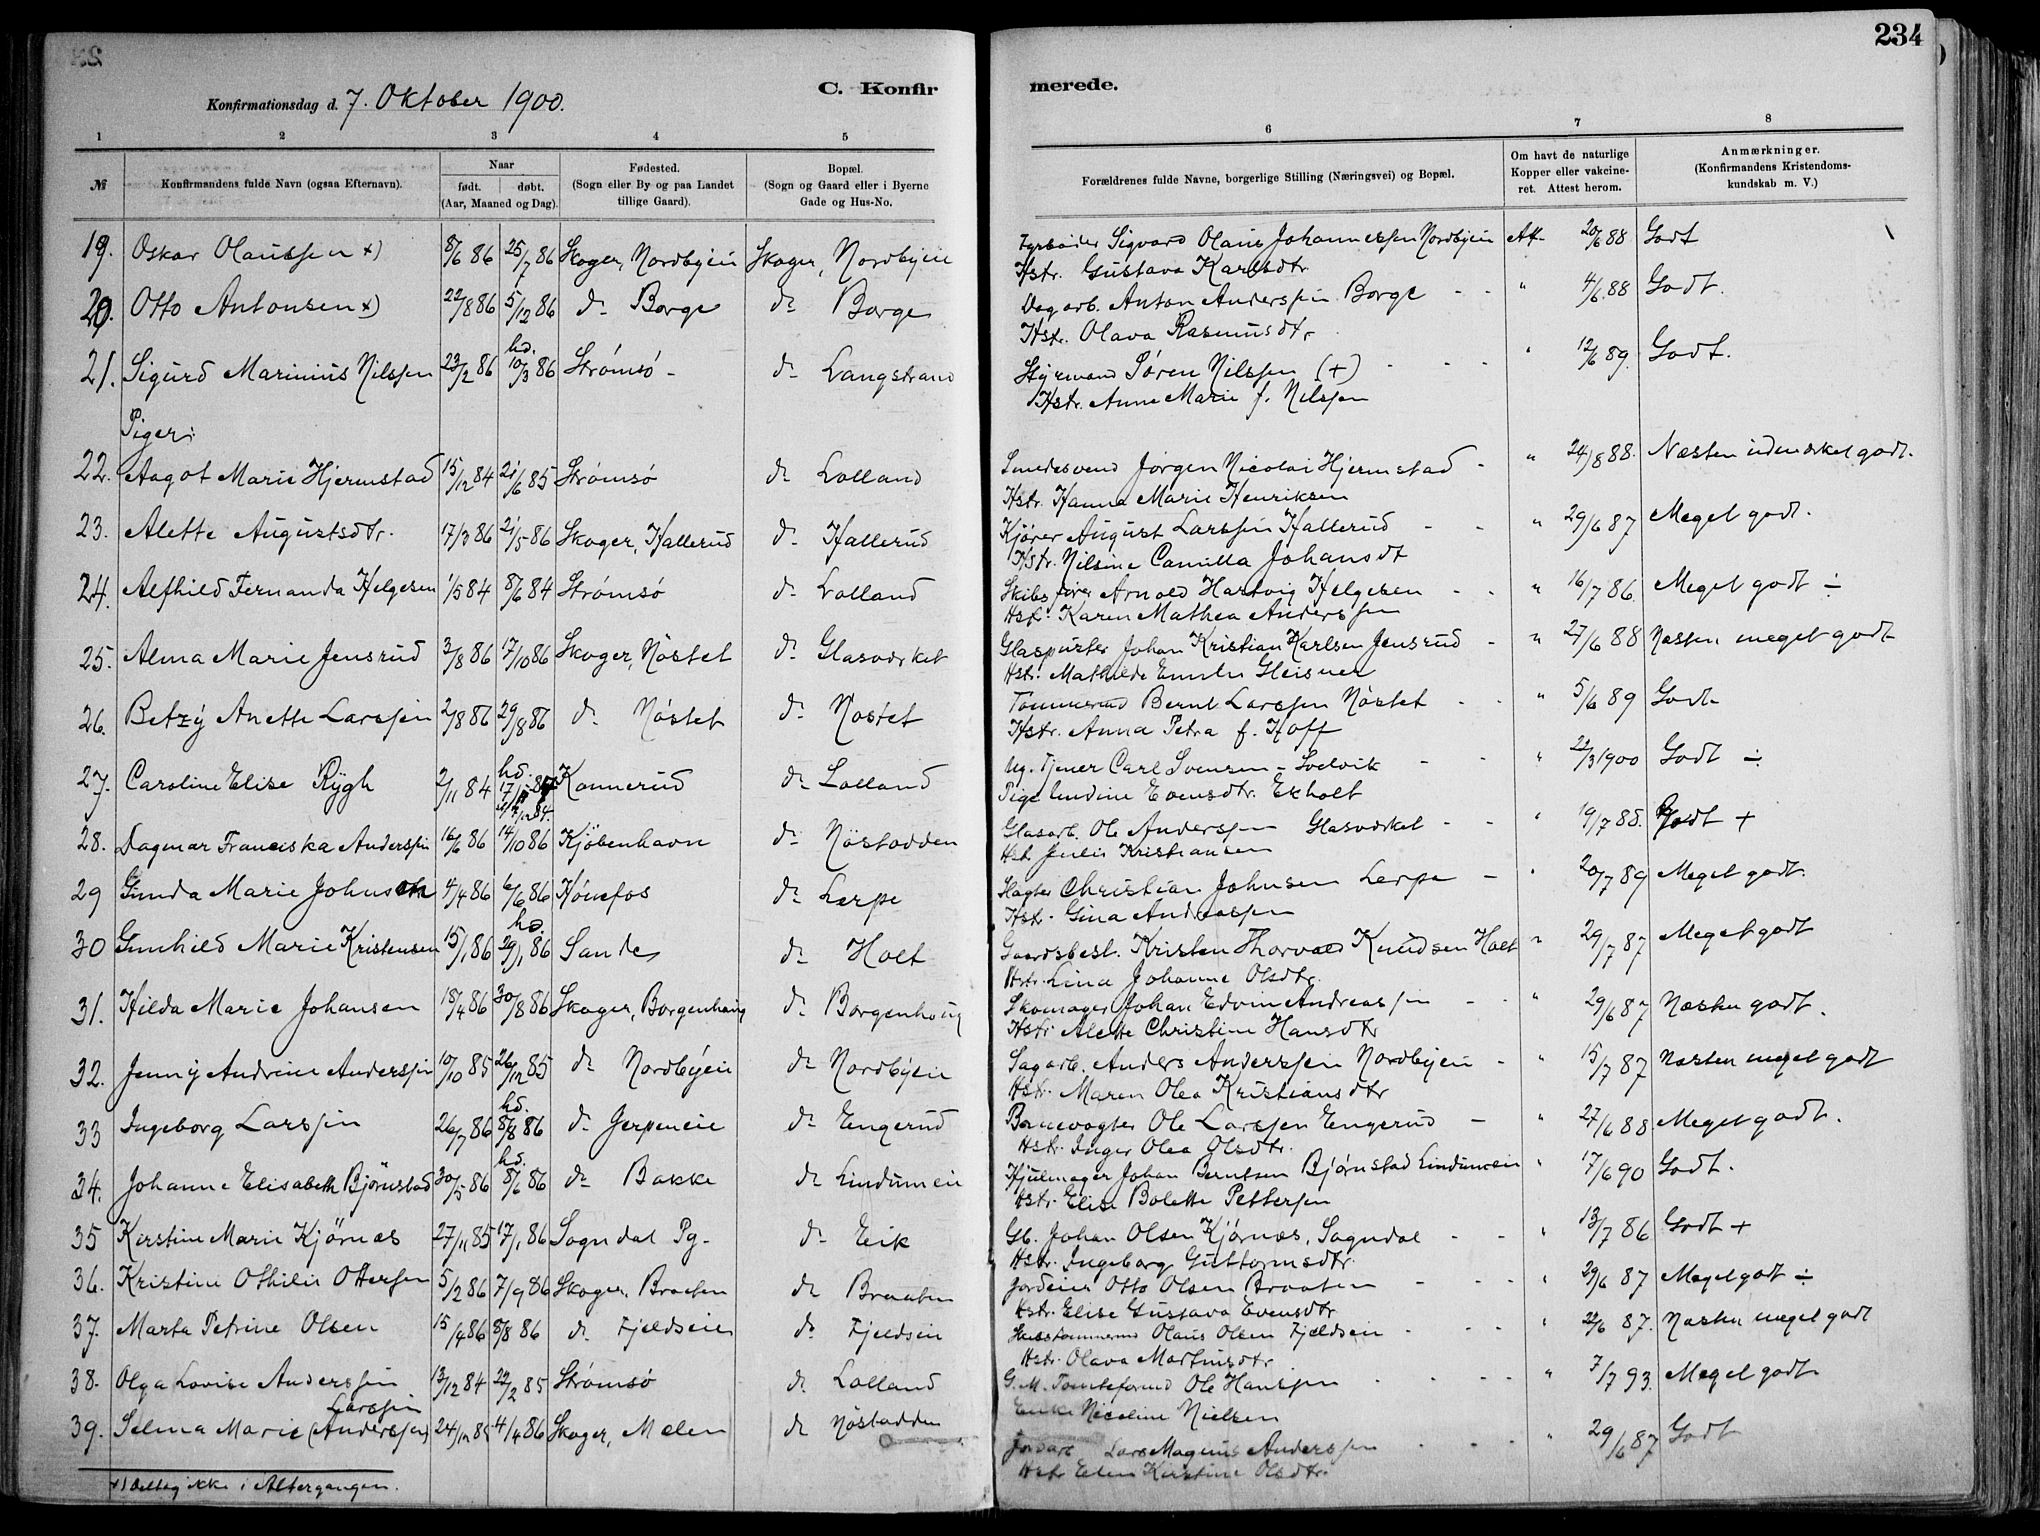 234
C. Konfirmerede.
Konfirmationsdag d. 7. Oktober 1900.
1 2 3 4 5 6 7 8
№
Konfirmandens fulde Navn (ogsaa Efternavn).
Naar
født. døbt.
(Aar, Maaned og Dag).
Fødested.
(Sogn eller By og paa Landet
tillige Gaard).
Bopæl.
(Sogn og Gaard eller i Byerne
Gade og Hus-No.
Forældrenes fulde Navne, borgerlige Stilling (Næringsvei) og Bopæl.
Om havt de naturlige
Kopper eller vakcine-
ret. Attest herom.
Anmærkninger.
(Konfirmandens Kristendoms-
kundskab m. V.)
19. Oskar Olaussen x) 8/6 86 25/7 86 Skoger, Nordbyeie Skoger, Nordbyeie Fyrbøder Sigvard Olaus Johannessen Nordbyeie Att. 20/6 88 Godt
Hstr. Gustava Karlsdtr
20. Otto Antonsen x) 22/8 86 5/12 86 do Borge do Borge Dagarb. Anton Anderssen Borge - - " 4/6 88 Godt.
Hstr. Olava Rasmusdtr
21. Sigurd Marinius Nilssen 23/2 86 hd. 10/3 86 Strømsø - do Langstrand Styrmand Søren Nilssen (+) - - - " 12/6 89. Godt.
Hstr. Anne Marie f. Nilssen
Piger:
22. Aagot Marie Hjermstad 15/12 84 21/6 85 Strømsø do Lolland Smedesvend Jørgen Nicolai Hjermstad - " 24/8 88. Næsten udmerket godt.
Hstr. Hanna Marie Henriksen
23. Alette Augustsdtr. 17/3 86 21/5 86 Skoger, Hallerud do Hallerud Kjører August Larssen Hallerud - - " 29/6 87 Meget godt.
Hstr. Nilsine Camilla Johansdt
24. Alfhild Fernanda Helgesen 1/5 84 8/6 84 Strømsø do Lolland Skibsfører Arnold Hartvig Helgesen - - " 16/7 86. Meget godt ÷
Hstr. Karen Mathea Anderssen
25. Alma Marie Jensrud 3/8 86 17/10 86 Skoger, Nöstet do Glasverket Glaspuster Johan Kristian Karlsen Jensrud - " 27/6 88 Næsten meget godt
Hstr. Mathilde Emilie Gleisner
26. Betzy Anette Larssen 2/8 86 29/8 86 do Nöstet do Nöstet Tømmermd Bernt Larssen Nöstet - - " 5/6 89 Godt
Hstr. Anna Petra f. Hoff
27. Caroline Elise Rygh 2/11 84 hd. Konnerud do Lolland Ug. Tjener Carl Svensen - Svelvik - - " 22/3 1900 Godt ÷
Pige Evensdtr. Ekholt
28. Dagmar Franciska Anderssen 16/6 86 14/10 86 Kjöbenhavn do Nöstodden Glasarb. Ole Anderssen Glasverket - - " 19/7 88. Godt +
Hstr Julie Kristiansen
29 Gunda Marie Johnsen 4/4 86 6/6 86 Hønefos do Lerpe Slagter Christian Johnsen Lerpe - " 20/7 89 Meget godt.
Hstr. Gina Andreassen
30 Gunhild Marie Kristensen 15/1 86 hd. 29/1 86 Sande do Holt Gaardsbest. Kristen Thorvald Knudsen Holt " 29/7 87 Meget godt
Hstr. Lina Johanne Olsdtr.
31. Hilda Marie Johansen 18/4 86 30/8 86 Skoger, Borgenhaug do Borgenhaug Skomager Johan Edvin Andreassen - - " 29/6 87 Næsten godt.
Hstr Alette Christine Hansdtr
32. Jenny Andrine Anderssen 10/10 85 26/12 85 do Nordbyeie do Nordbyeie Sagarb. Anders Anderssen Nordbyeie - " 15/7 87 Næsten meget godt
Hstr. Maren Olea Kristiansdtr
33 Ingeborg Larssen 26/7 86 hd. 8/8 86 do Jerpeneie do Engerud Banevogter Ole Larssen Engerud - " 27/6 88 Meget godt.
Hstr. Inger Olea Olsdtr.
34. Johanne Elisabeth Bjørnstad 30/5 86 hd. 8/6 86 do Bakke do Lindumeie Hjulmager Johan Berntsen Bjørnstad Lindumeie " 17/6 90 Godt.
Hstr. Elise Bolette Pettersen
35 Kirstine Marie Kjörnæs 27/11 85 17/1 86 Sogndal Pg. do Eik Gb. Johan Olsen Kjørnæs, Sogndal - - " 13/7 86 Godt +
Hstr. Ingeborg Guttormsdtr.
36. Kristine Othilie Ottersen 5/2 86 7/9 86 Skoger, Braaten do Braaten Jordeier Otto Olsen Braaten - - - " 29/6 87 Meget godt ÷
Hstr. Elise Gustava Evensdtr
37. Marta Petrine Olsen 15/4 86 8/8 86 do Fjeldseie do Fjeldseie Hustømmermd Olaus Olsen Fjeldseie - - - " 22/6 87. Næsten meget godt
Hstr. Olava Martinsdtr
38. Olga Lovise Anderssen 13/12 84 22/2 85 Strømsø do Lolland G. M. Tomteformd Ole Hanssen - - - " 7/7 93. Meget godt
Enke Nicoline Nielsen
39. Selma Marie (Anderssen) Larssen 24/12 85 4/4 86 Skoger, Melen do Nöstodden Jordarb Lars Magnus Anderssen - - - " 29/6 87 Godt
Hstr Elen Kirstine Olsdtr.
x) Deltog ikke i Altergangen.